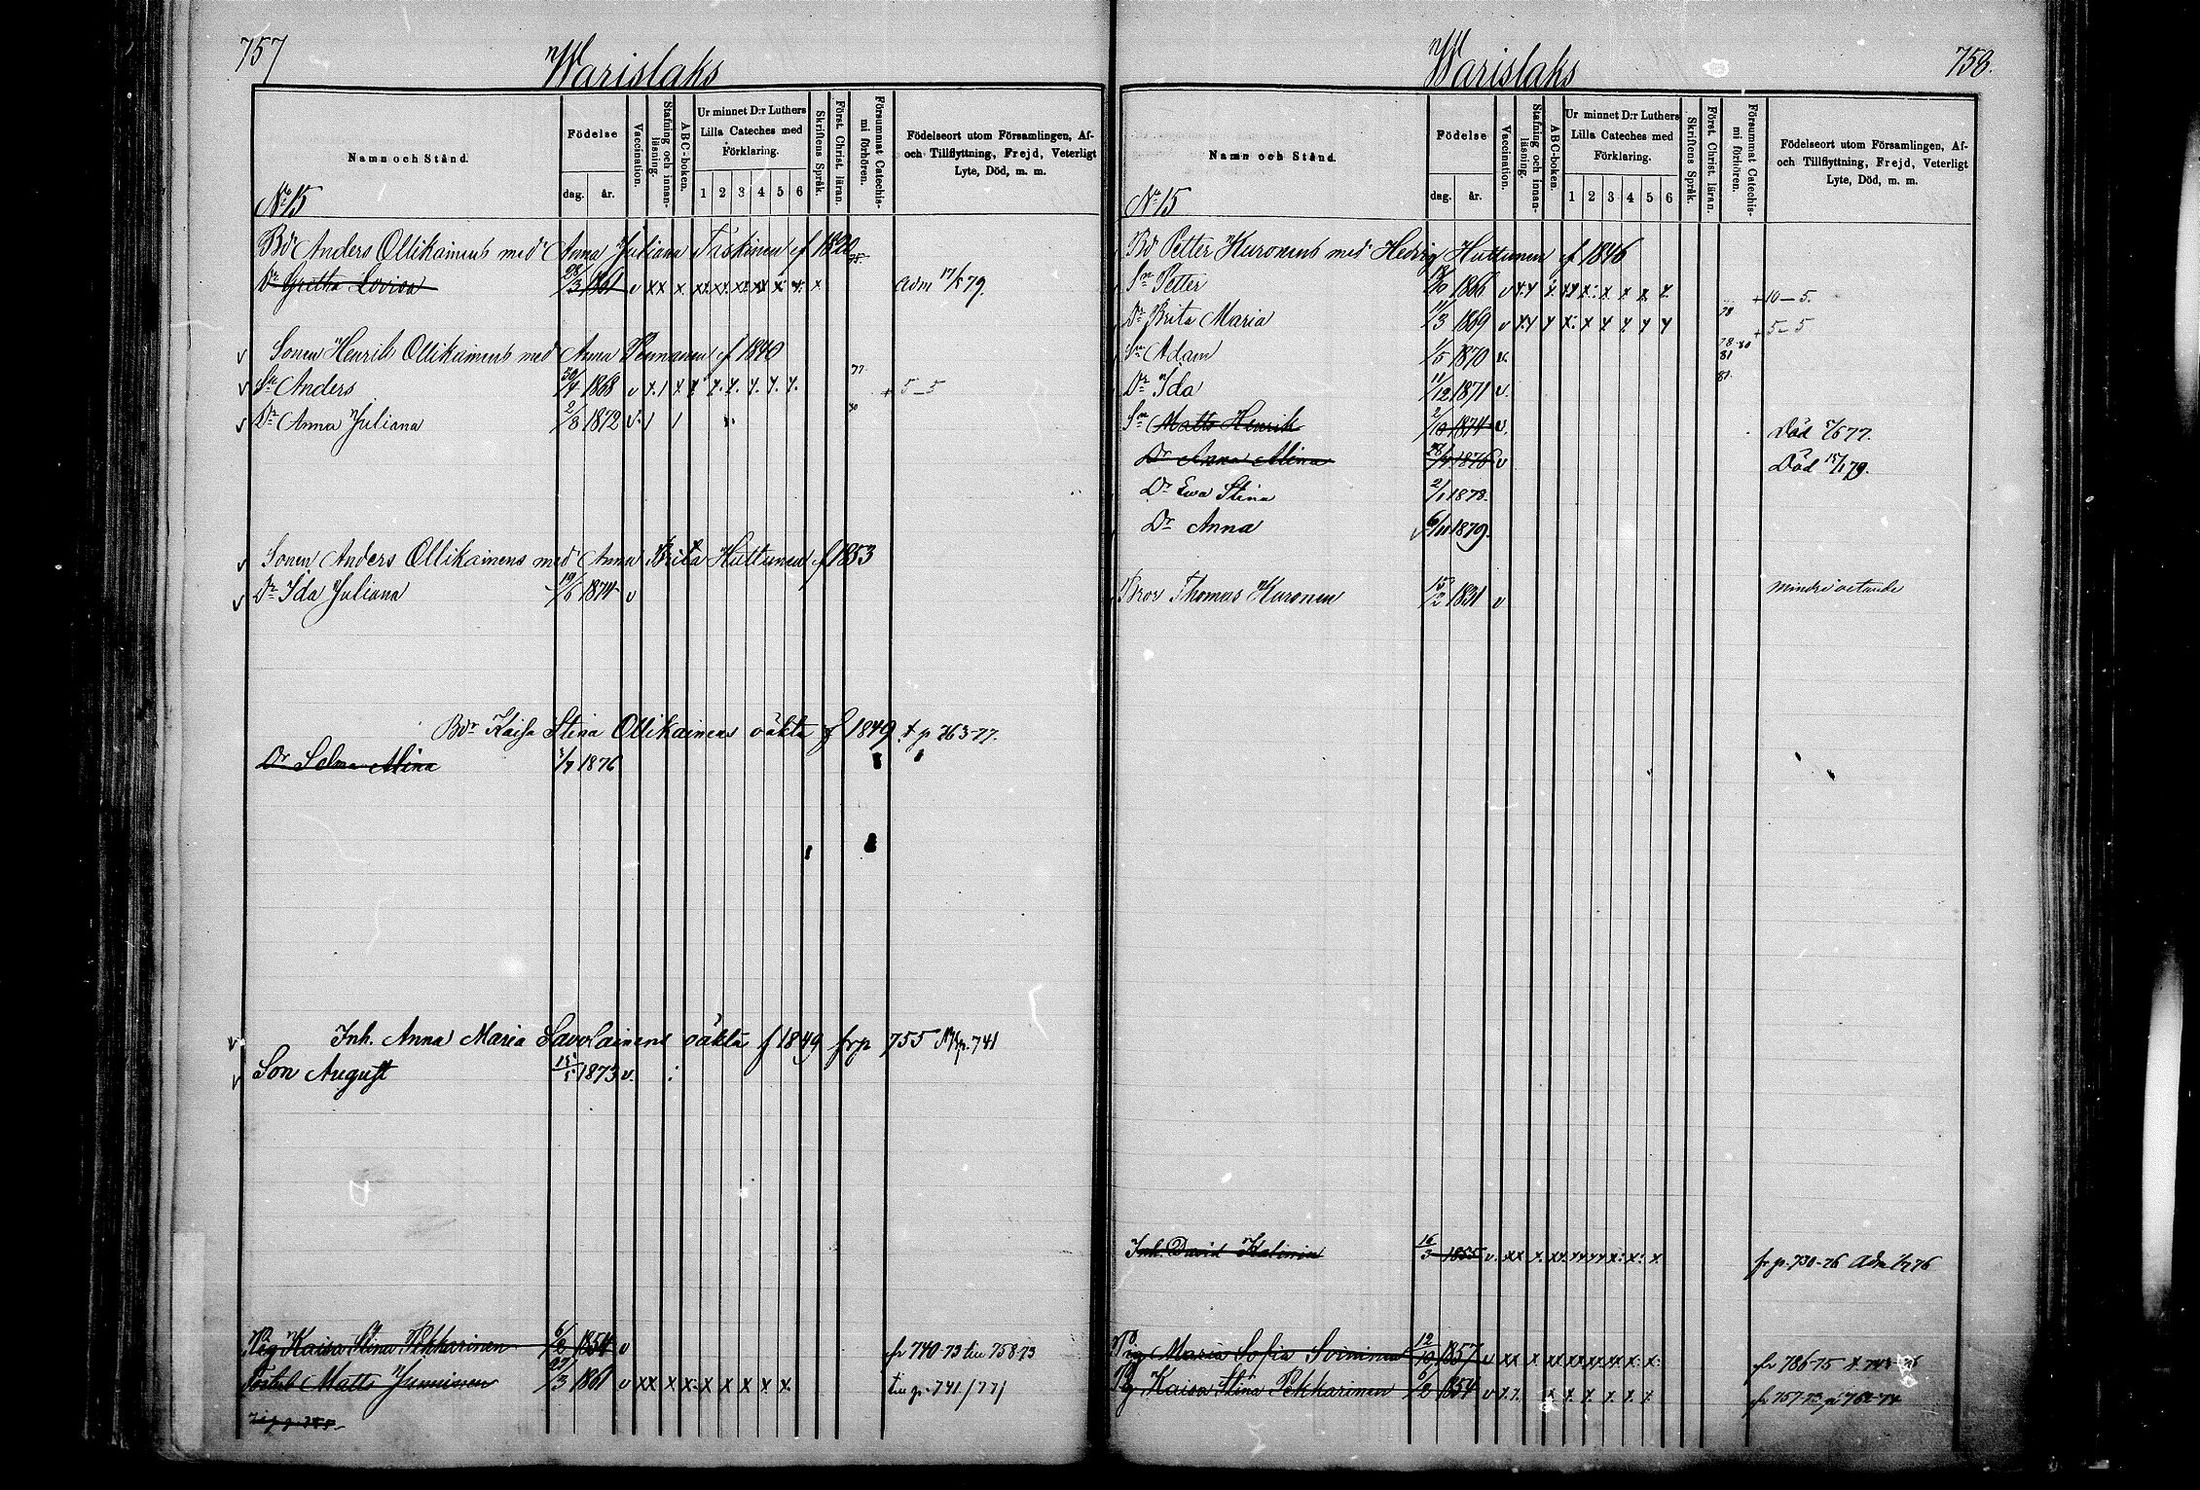 757
Warislaks
Namn och Stånd.
Födelse
dag. år.
Vaccination.
Stafning och innanläsning.
ABC-boken.
Ur minnet D:r Luthers Lilla Cateches med Förklaring.
1 2 3 4 5 6
Skriftens Språk.
Först. Christ. läran.
Försummat Catechismi förhören.
Födelseort utom Församlingen, Af- och Tillflyttning, Frejd, Veterligt Lyte, Död, m. m.
No 15
Bd Anders Ollikainens med Anna Juliana Taskinen f 1820
Dr Gretha Lovisa 28/3 1861 v xx x xx x x x x x x adm 17/5 79.
v Sonen Henrik Ollikainens med Anna Pennanen f 1840
v Sn Anders 30/4 1868 v 77 + 5–5
v Dr Anna Juliana 2/8 1872 v 80
v Sonen Anders Ollikainens med Anna Brita Huttunen f 1853
v Dr Ida Juliana 19/6 1874 v
Bdr Kaisa Stina Ollikainens oäkta f 1849 t p 763-77.
Dr Selma Alina 1876
v Inh. Anna Maria Savolainens oäkta f 1849 frp 755 p. 741
v Son August 15/5 1873 v.
Pig Kaisa Stina Pekkarinen 6/2 1854 v fr 740-73 till 758-73
Matts Junninen 27/3 1861 v xx x x x x x x till p. 741/77
758.
Warislaks
Namn och Stånd.
Födelse
dag. år.
Vaccination.
Stafning och innanläsning.
ABC-boken.
Ur minnet D:r Luthers Lilla Cateches med Förklaring.
1 2 3 4 5 6
Skriftens Språk.
Först. Christ. läran.
Försummat Catechismi förhören.
Födelseort utom Församlingen, Af- och Tillflyttning, Frejd, Veterligt Lyte, Död, m. m.
No 15
Bd Petter Kuronens med Hedvig Huttunen f 1846
Sn Petter 1866 v + 10–5.
Dr Brita Maria 11/3 1869 v 78 + 5–5
Sn Adam 1/5 1870 v. 78 80 81
Dr Ida 11/12 1871 v. 81.
Sn Matts Henrik 2/10 1874 v. Död 77.
Dr Anna Alina 1876 v Död 15/1 79.
Dr Ewa Stina 2/1 1878.
Dr Anna 6/11 1879.
Bror Thomas Kuronen 15/2 1831 v mindre vetande
Inh. David Kalinin 16/3 1855 v. xx x. fr p. 730-76 adm 76
Pig Maria Sofia Soininen 12/10 1857 v xx x fr 786-75
Pig Kaisa Stina Pekkarinen 6/2 1854 v fr 757-73 p 762-74